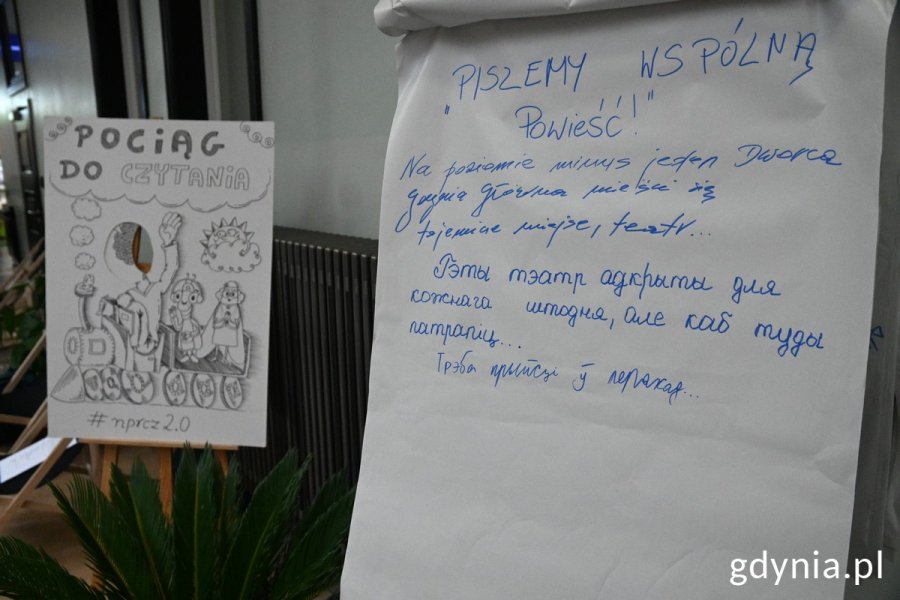 POCIĄG
DO CZYTANIA
#nprcz2.0
"PISZEMY WSPÓLNĄ
POWIEŚĆ!"
Na poziomie minus jeden Dworca
Gdynia Główna mieści się
tajemne miejsce, teatr...
Гэты тэатр адкрыты для
кожнага штодня, але каб туды
патрапіц...
Трэба прыйсці ў пераход...
gdynia.pl